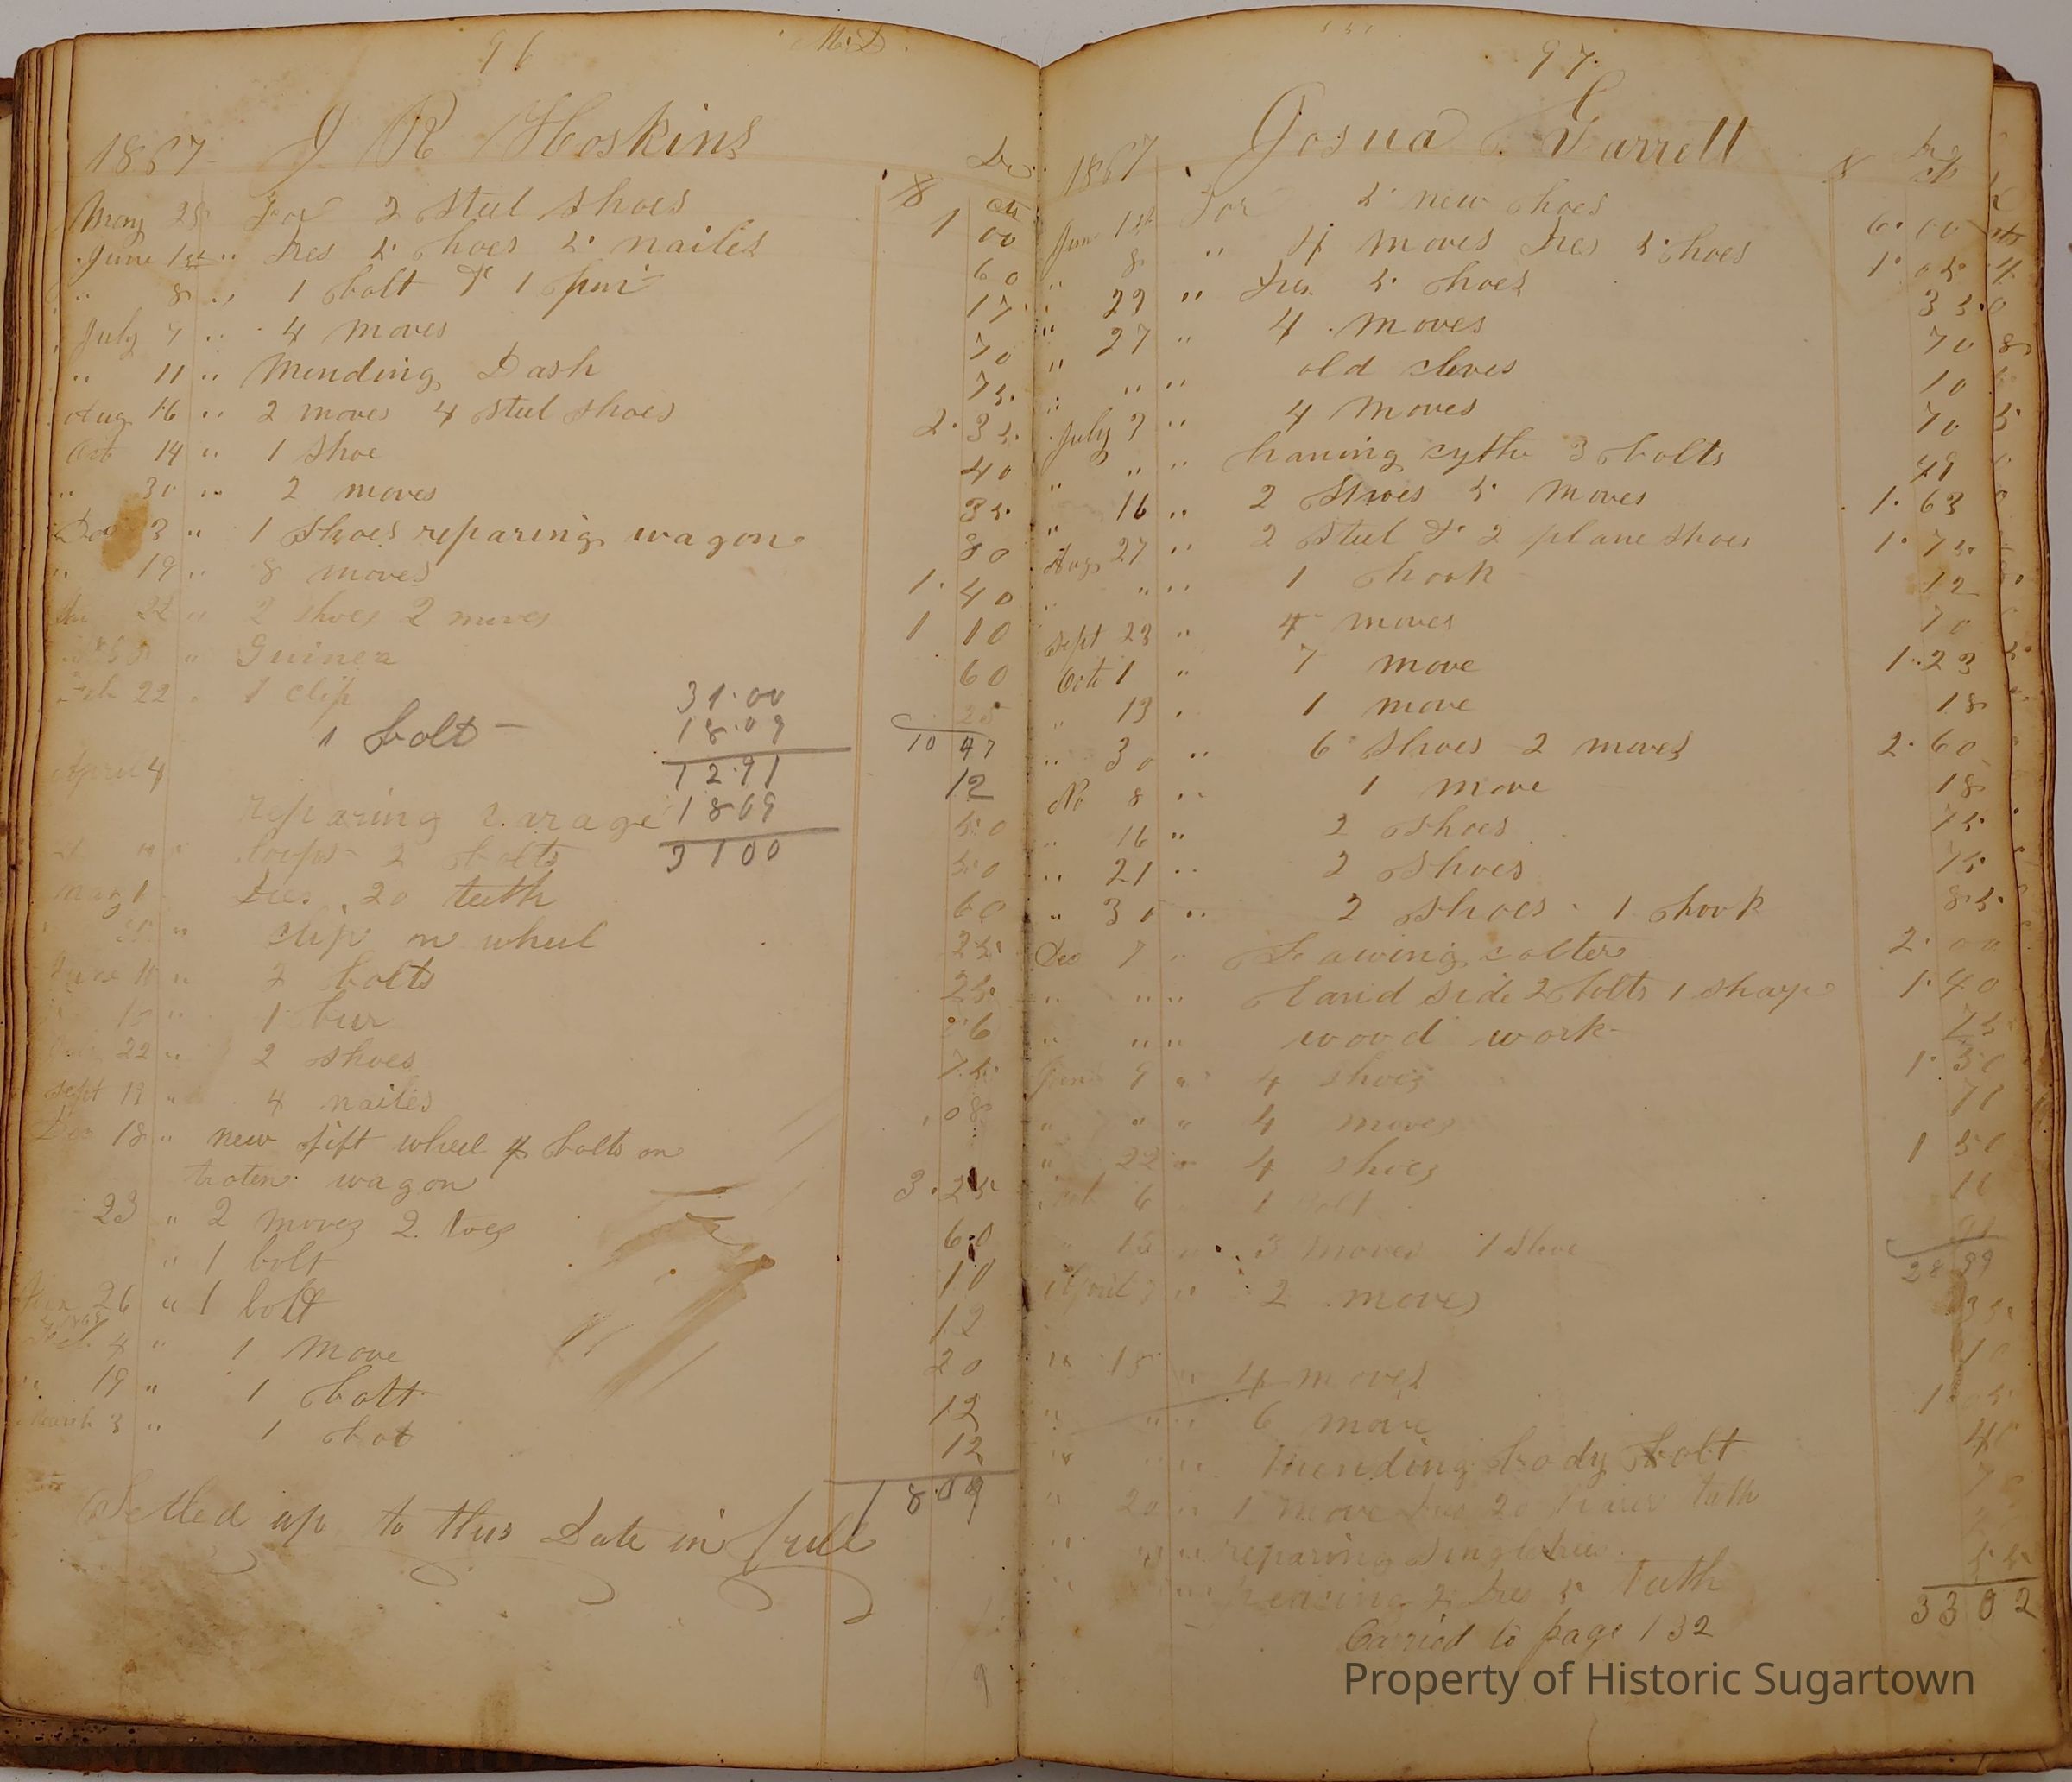 96
1867 J R Hoskins Dr
$ cts
May 25 For 2 steel shoes 1 00
June 1st " Dres 5 shoes 5 nailes 60
" 8 " 1 bolt & 1 pin 17
July 7 " 4 moves 70
" 11 " Mending Dash 75
Aug 16 " 2 moves 4 steel shoes 2.35
Oct 14 " 1 shoe 40
" 30 " 2 moves 35
3 " 1 shoes reparing wagon 80
" 19 " 8 moves 1.40
22 " 2 shoes 2 moves 1 10
" Guinea 60
Feb 22 " 1 clip 25
31.00
1 bolt 18.09 10 47
April 4 12.91 12
reparing carage 1809 50
3100
loops 2 bolts 50
May 1 Dres 20 teeth 60
" clip on wheel 25
June 10 " 2 bolts 25
" 1 bur 06
22 " 2 shoes 75
Sept 19 " 4 nailes .08
Dec 18 " new fift wheel 4 bolts on
troten wagon 3.25
23 " 2 moves 2 toes 60
" 1 bolt 10
26 " 1 bolt 12
Feb 4 " 1 move 20
" 19 " 1 bolt 12
March 3 " 1 bot 12
18.09
Setled up to thus Date in full
97
1867 Josua Garrett Dr
$ cts
June 1st For 5 new shoes 6.00
" 8 " 4 moves Dres 5 shoes 1.05
" 22 " Dres 5 shoes 35
" 27 " 4 moves 70
" " " old cleves 10
July 7 " 4 moves 70
" " " haning sythe 3 bolts
" 16 " 2 shoes 5 moves 1.63
Aug 27 " 2 steel & 2 plane shoes 1.75
" " " 1 hook 12
Sept 23 " 4 moves 70
Oct 1 " 7 move 1.23
" 13 " 1 move 18
" 30 " 6 shoes 2 moves 2.60
No 8 " 1 move 18
" 16 " 2 shoes 75
" 21 " 2 shoes 75
" 30 " 2 shoes 1 hook 85
Dec 7 " colter 2.00
" " " land side 2 bolts 1 sharp 1.40
" " " wood work 75
9 " 4 shoes 1.50
" " " 4 moves
" 22 " 4 shoes 1 50
6 " 1 bolt 10
" 15 " 3 moves 1 shoe 91
28 99
April 7 " 2 moves 35
" 15 " 4 moves
" " " 6 move 1.05
" " " Mending body bolt 40
" 20 " 1 move Dres 20 teeth
" " " reparing singletree
" " " 2 Dres 5 teeth 55
3302
Carried to page 132
Property of Historic Sugartown